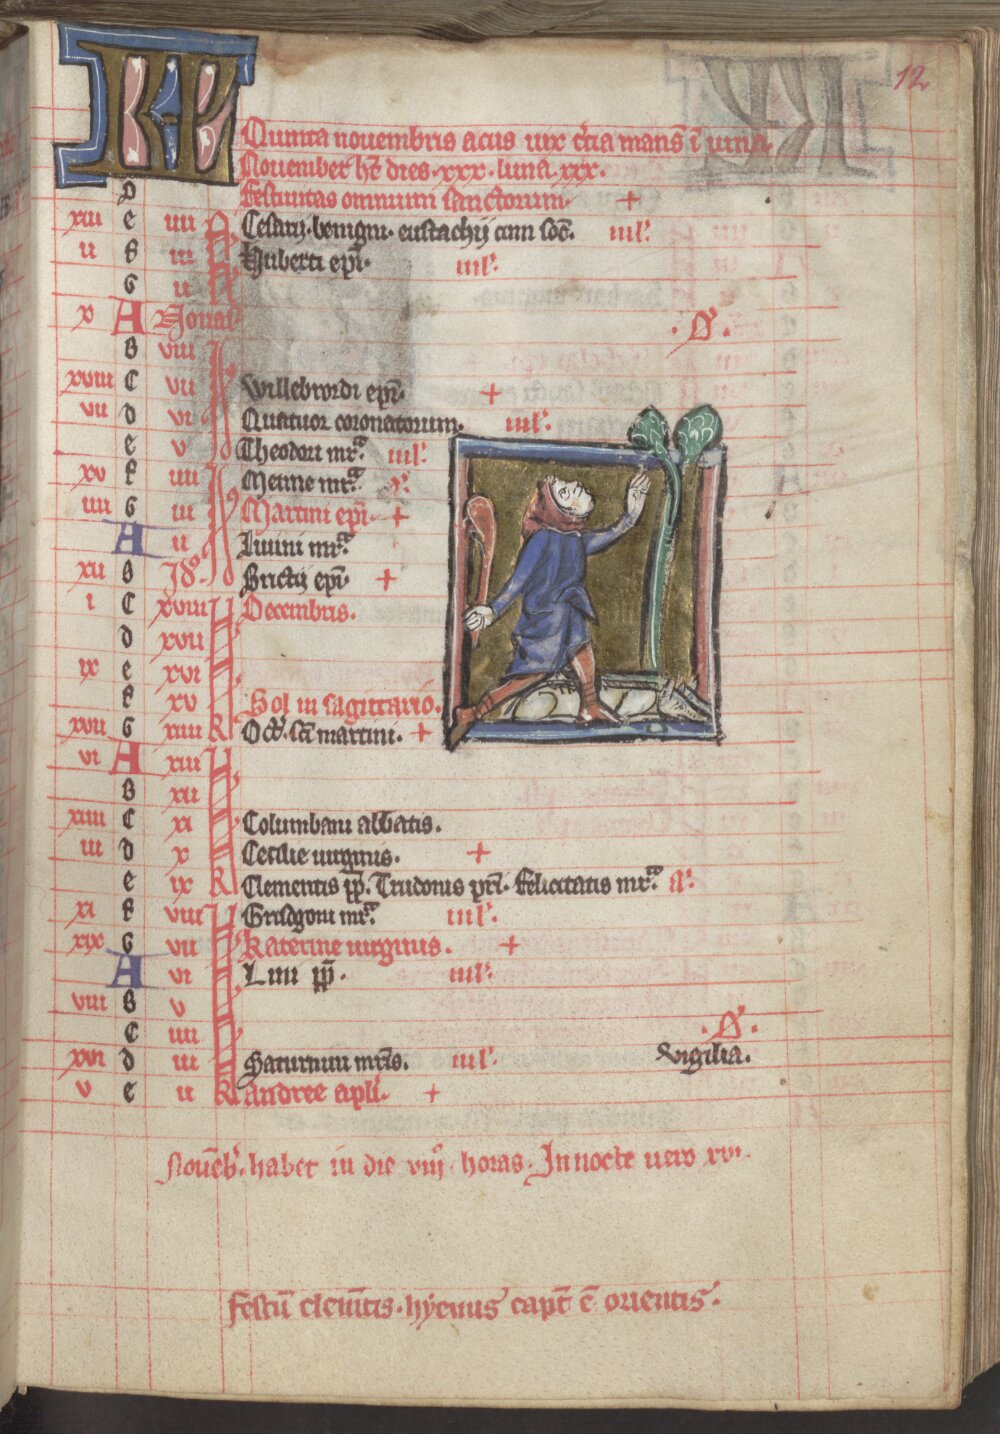 12
KL
Quinta nouembris acus uix t̄cia mans̄ ī urna.
Nouember ht̄ dies xxx. luna xxx.
D Festiuitas omnium sanctorum. +
xiii e iiii N Cesarij. benigni. eustachij cum soc̄. iiil'.
ii f iii Huberti ep̄i. iiil'.
G ii
x A Nonas . D'.
B viii
xviii C vii willebrordi ep̄i. +
vii d vi Quatuor coronatorum. iiil'.
e v Theodori mr̄. iiil'.
xv f iiii Menne mr̄.
iiii G iii Martini ep̄i. +
A ii Liuini mr̄.
xii B Id'. Brictij ep̄i. +
i C xviii Decembris.
d xvii
ix e xvi
f xv Sol in sagittario.
xvii G xiiii Oct̄. sc̄i martini. +
vi A xiii
B xii
xiiii C xi Columbani abbatis.
iii d x Cecilie uirginis. +
e ix kl Clementis pp̄. Trudonis pr̄i. felicitatis mr̄.
xi f viii Grisogoni mr̄. iiil'.
xix G vii katerine uirginis. +
A vi Lini pp̄. iiil'.
viii B v
C iiii . D'.
xvi d iii Saturnini mr̄is. iiil'. vigilia.
v e ii kl andree ap̄li. +
Nouēb'. habet in die viii horas. In nocte uero xvi.
festū clemētis. hyemis capt̄ ē orientis.